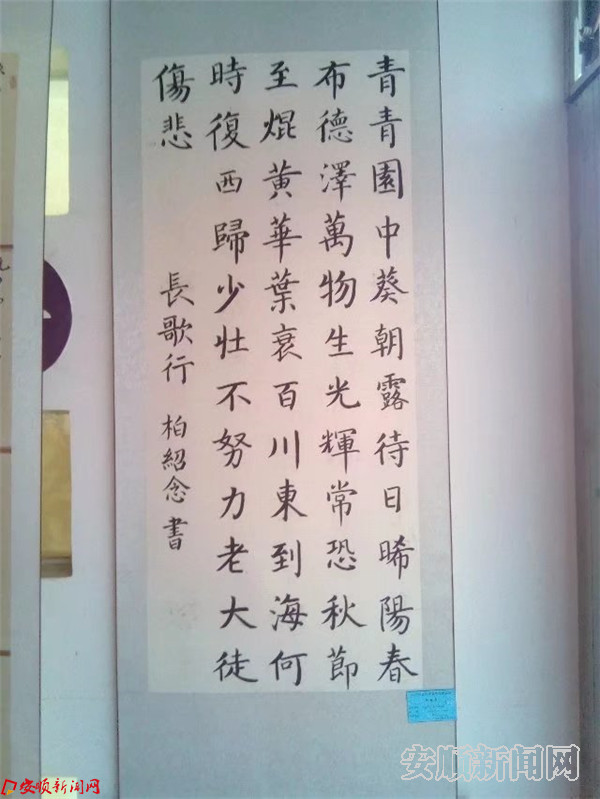 青青園中葵朝露待日晞陽春
布德澤萬物生光輝常恐秋節
至焜黃華葉衰百川東到海何
時復西歸少壯不努力老大徒
傷悲
長歌行 柏紹念書
安顺新闻网
安顺新闻网